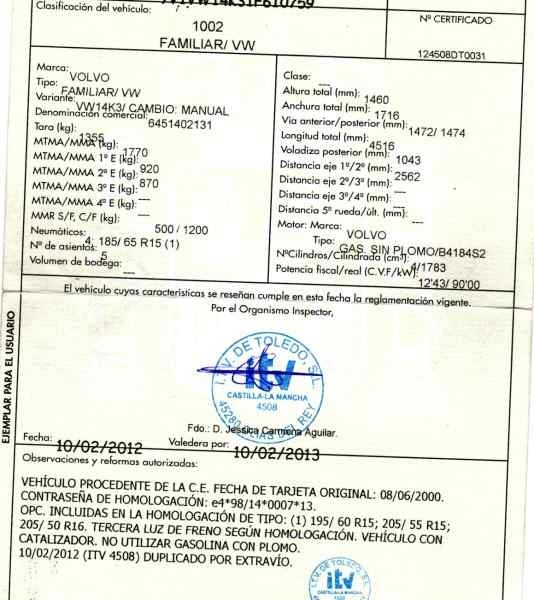 Clasificación del vehículo:
Nº CERTIFICADO
1002
FAMILIAR/ VW
124508DT0031
Marca: VOLVO
Tipo: FAMILIAR/ VW
Variante: VW14K3/ CAMBIO: MANUAL
Denominación comercial: 6451402131
Tara (kg): 1355
MTMA/MMA (kg): 1770
MTMA/MMA 1º E (kg): 920
MTMA/MMA 2º E (kg): 870
MTMA/MMA 3º E (kg): ---
MTMA/MMA 4º E (kg): ---
MMR S/F, C/F (kg): 500 / 1200
Neumáticos: 4; 185/ 65 R15 (1)
Nº de asientos: 5
Volumen de bodega: ---
Clase: ---
Altura total (mm): 1460
Anchura total (mm): 1716
Vía anterior/posterior (mm): 1472/ 1474
Longitud total (mm): 4516
Voladizo posterior (mm): 1043
Distancia eje 1º/2º (mm): 2562
Distancia eje 2º/3º (mm): ---
Distancia eje 3º/4º (mm): ---
Distancia 5º rueda/últ. (mm): ---
Motor: Marca: VOLVO
Tipo: GAS. SIN PLOMO/B4184S2
NºCilindros/Cilindrada (cm³): 4/1783
Potencia fiscal/real (C.V.F/kW): 12'43/ 90'00
El vehículo cuyas características se reseñan cumple en esta fecha la reglamentación vigente.
Por el Organismo Inspector,
I.T.V. DE TOLEDO, S.L.
itv
CASTILLA-LA MANCHA
4508
Fdo.: D. Jessica Carmena Aguilar.
Fecha: 10/02/2012 Valedera por: 10/02/2013
EJEMPLAR PARA EL USUARIO
Observaciones y reformas autorizadas:
VEHÍCULO PROCEDENTE DE LA C.E. FECHA DE TARJETA ORIGINAL: 08/06/2000.
CONTRASEÑA DE HOMOLOGACIÓN: e4*98/14*0007*13.
OPC. INCLUIDAS EN LA HOMOLOGACIÓN DE TIPO: (1) 195/ 60 R15; 205/ 55 R15;
205/ 50 R16. TERCERA LUZ DE FRENO SEGÚN HOMOLOGACIÓN. VEHÍCULO CON
CATALIZADOR. NO UTILIZAR GASOLINA CON PLOMO.
10/02/2012 (ITV 4508) DUPLICADO POR EXTRAVÍO.
I.T.V. DE TOLEDO, S.L.
itv
CASTILLA-LA MANCHA
4508